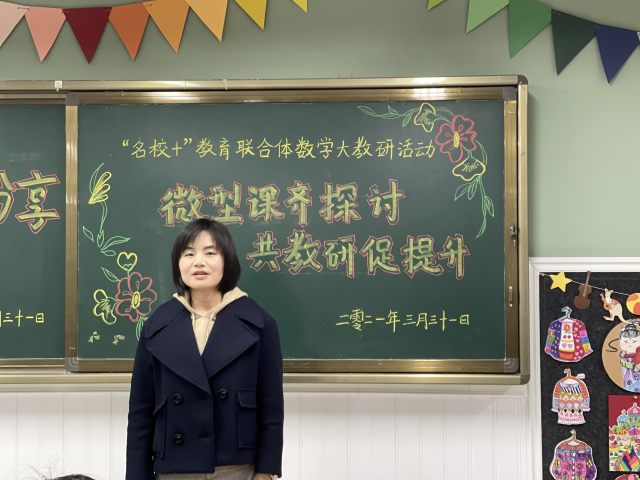 “名校+”教育联合体数学大教研活动
微型课齐探讨
共教研促提升
二零二一年三月三十一日
分享
月三十一日